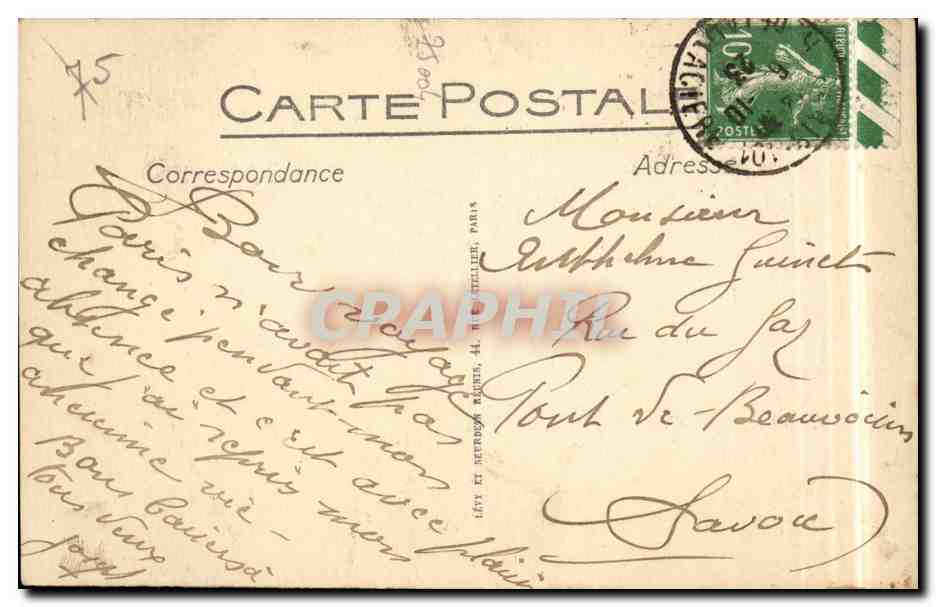 75
75004
CARTE POSTALE
Correspondance
Adresse
10c
POSTES
Bon voyage
Paris n'avait pas
changé pendant mon
absence et c'est avec plaisir
que j'ai repris mon
ancienne vie -
Bons baisers à
tous deux
LÉVY ET NEURDEIN RÉUNIS, 44, RUE LETELLIER, PARIS
Monsieur
Guinet
Rue du Gaz
Pont de-Beauvoisin
Savoie
CRAPHIL